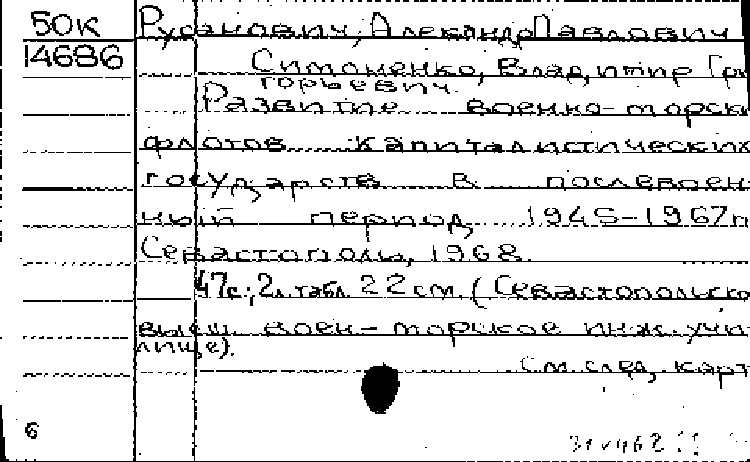 50К
14686
Русанович, Александр Павлович
Симоненко, Владимир Гри
горьевич.
Развитие военно-морск
флотов капиталистических
государств в послевоен
ный период 1945-1967гг
Севастополь, 1968.
47с.; 2л. табл. 22 см. (Севастопольско
высш. воен-морское инж. учи
лище).
См. след. карт
6